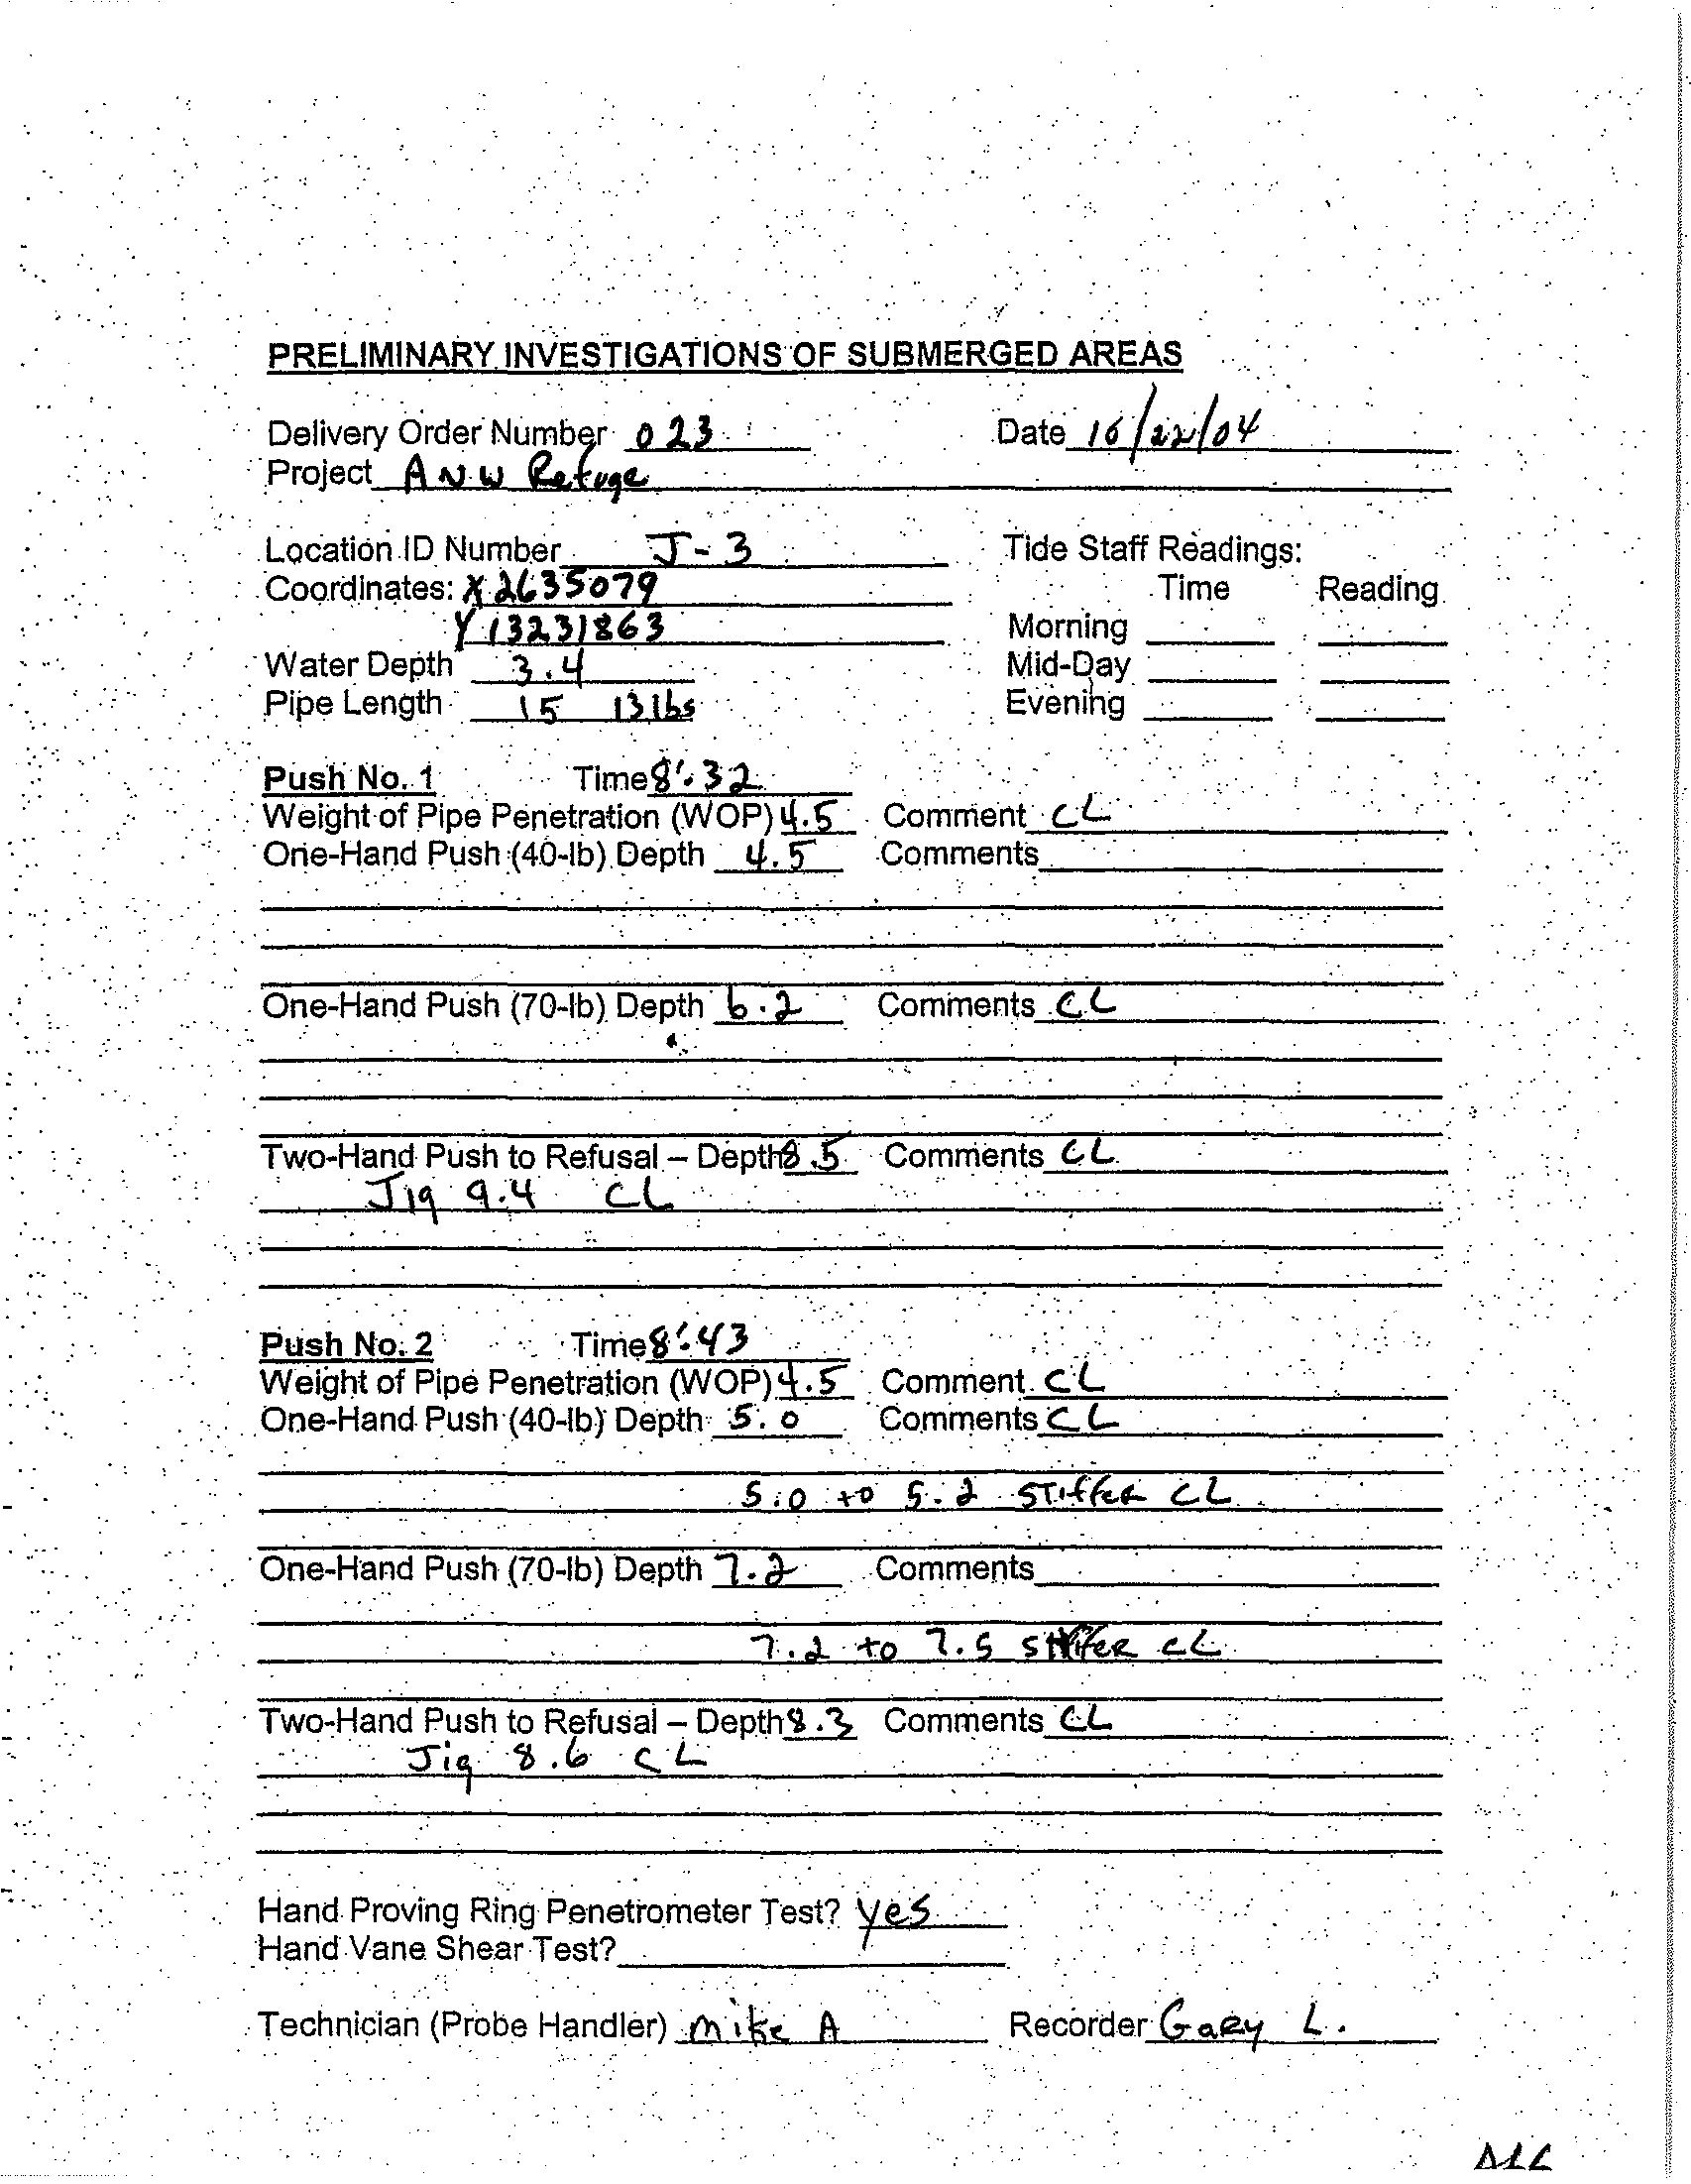 PRELIMINARY INVESTIGATIONS OF SUBMERGED AREAS
Delivery Order Number 023 Date 10/22/04
Project ANW Refuge
Location ID Number J-3 Tide Staff Readings:
Coordinates: X 2635079 Time Reading
Y 13231863 Morning
Water Depth 3.4 Mid-Day
Pipe Length 15 13 lbs Evening
Push No. 1 Time 8:32
Weight of Pipe Penetration (WOP) 4.5 Comment CL
One-Hand Push (40-lb) Depth 4.5 Comments
One-Hand Push (70-lb) Depth 6.2 Comments CL
Two-Hand Push to Refusal – Depth 8.5 Comments CL
Jig 9.4 CL
Push No. 2 Time 8:43
Weight of Pipe Penetration (WOP) 4.5 Comment CL
One-Hand Push (40-lb) Depth 5.0 Comments CL
5.0 to 5.2 STiffer CL
One-Hand Push (70-lb) Depth 7.2 Comments
7.2 to 7.5 stiffer CL
Two-Hand Push to Refusal – Depth 8.3 Comments CL
Jig 8.6 CL
Hand Proving Ring Penetrometer Test? yes
Hand Vane Shear Test?
Technician (Probe Handler) Mike A Recorder Gary L.